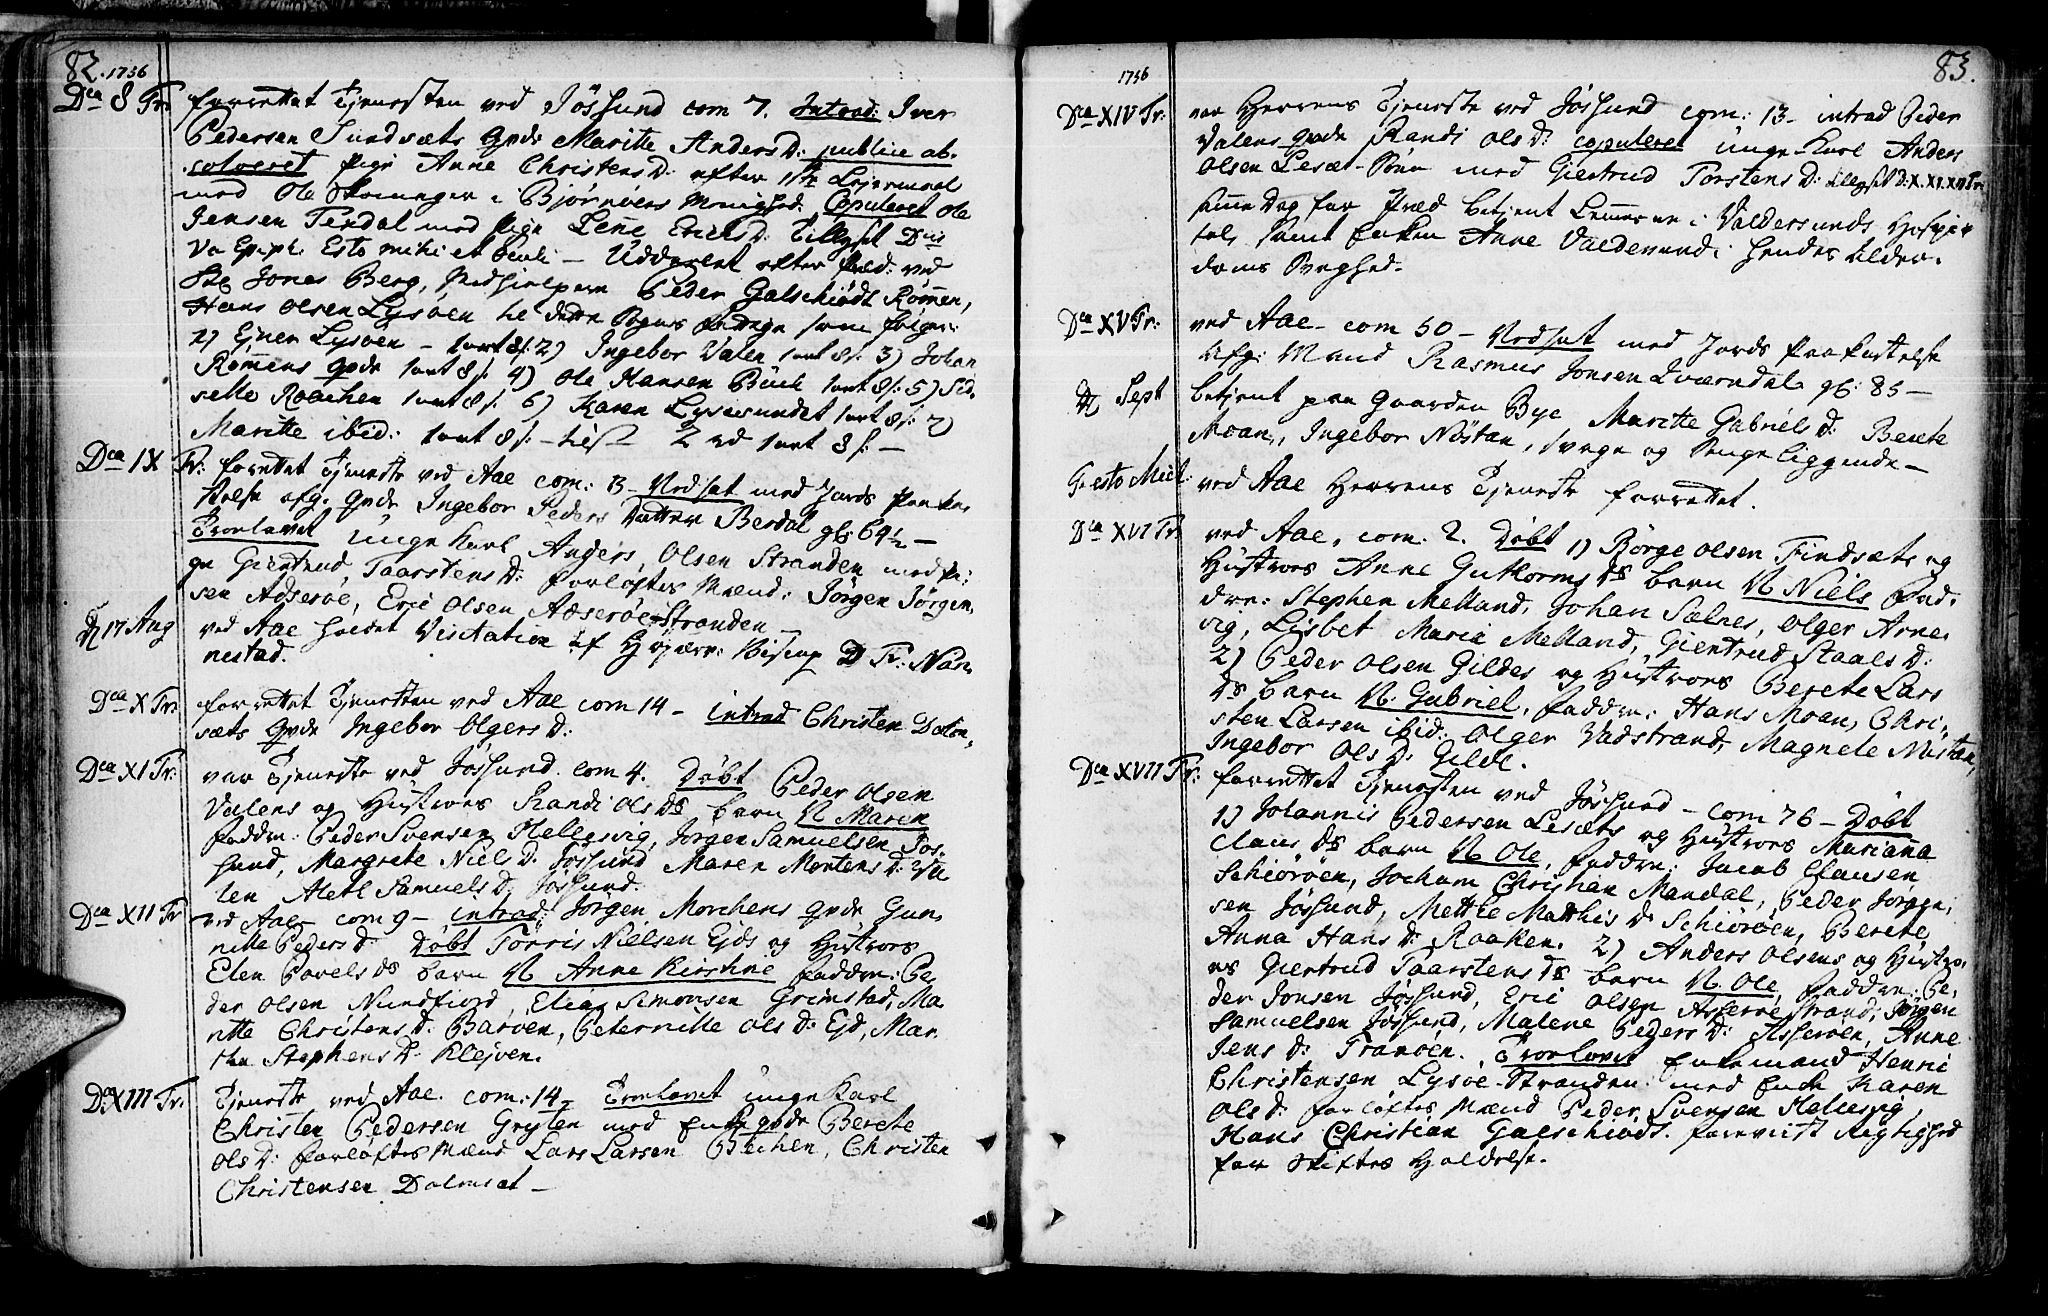 82. 1756
Dca 8 Tr: forrettet Tjenesten ved Jössund com 7. Introd: Iver
Pedersen Sundsæts qvde Maritte Anders D: publice ab-
solveret Pige Anne Christens D: efter 1ste Lejermaal
med Ole i Bjørnöers Menighed. Copuleret Ole
Jensen Terdal med Pige Lene Erichs D: Tillyset Dnis
Va Epiph. Esto mihi et - Uddeelt efter Præd: ved
Jonas Berg, Medhielpere Peder Galschiödt Römmen,
Hans Olsen Lysöen til dette Sogns som følger:
1) Ejner Lysöen - 1 ort 8 s: 2) Ingebor Valen 1 ort 8 s: 3) Johan
Römmens qvde 1 ort 8 s: 4) Ole Hansen 1 ort 8 s: 5)
sette Raachen 1 ort 8 s: 6) Karen Lysesundet 1 ort 8 s: 7)
Maritte ibid: 1 ort 8 s: - 1 ort 8 s: -
Dca IX Tr: forrettet Tjeneste ved Aae com: 13 - Nedsat med Jords Paaka-
stelse afg. qvde Ingebor Peders Datter Berdal gl: 69½ -
Trolovet unge Karl Anders Olsen Stranden med Pi-
ge Giertrud Taarstens D: Forløftes Mænd: Jörgen Jörgen-
sen Adseröe, Eric Olsen Adseröe-Stranden -
17 Aug ved Aae holdet Visitation af Höjærv: Biscop D Fr: Nan-
nestad.
Dca X Tr: forrettet Tjenesten ved Aae com 14 - introd Christen Dolm-
sæts qvde Ingebor Olgers D:
Dca XI Tr: var Tjeneste ved Jössund com 4. Döbt Peder Olsen
Valens og Hustroes Randi Ols Ds barn N. Maren
Faddre: Peder Svensen Hellesvig, Jörgen Samuelsen Jös-
sund, Margrete Niels D. Jössund Maren Mortens D: Va-
len Aleth Samuels D: Jössund.
Dca XII Tr ved Aae - com 9 - introd: Jörgen Morchens qvde Gun-
nille Peders D: Döbt Törris Nielsen Ejds og Hustroes
Elen Povels Ds barn N. Anne Kirstine Faddre: Pe-
der Olsen Nundfiord, Elias Simonsen Grimstad, Ma-
ritte Christens D: Baröen, Peternille Ols D: Ejd, Mar-
the Stephens D. Klejven.
Dca XIII Tr: Tjeneste ved Aae. com: 14 - Trolovet unge Karl
Christen Pedersen Gryten med Enke qvde Berete
Ols D: Forløftes Mænd Lars Larsen Bechen, Christen
Christensen Dolmsæt -
1756 83.
Dca XIV Tr: var Herrens Tjeneste ved Jössund com: 13 - introd Peder
Valens qvde Randi Ols D: copuleret unge Karl Anders
Olsen Lesæt-Söen med Giertrud Torstens D: tillyst D: X. XI. XII Tr:
samme Dag for Præd betjent Lemmerne i Valdersunds Hospi-
tal, samt Enken Anne Valdersund i hendes Alder-
doms Svaghed.
Dca XV Tr: ved Aae - com 50 - Nedsat med Jords Paakastelse
afg: Mand Rasmus Jonsen Qværndal gl: 85 -
Sept betjent paa Gaarden Bye Maritte Gabriels D: Berete
Moan, Ingebor Nöstan, svage og Sengeliggende -
Festo Mich: ved Aae Herrens Tjeneste forrettet.
Dca XVI Tr: ved Aae, com. 2. Döbt 1) Börge Olsen Findsæts og
Hustroes Anne Guttorms Ds barn N Niels Fad-
dre: Stephen Melland, Johan Sælnes, Olger Arne-
vig, Lisbet Maria Melland, Giertrud Staals D:
2) Peder Olsen Gildes og Hustroes Berete Lars
Ds barn N. Gabriel, Faddre: Hans Moan, Chri-
sten Larsen ibid: Olger Vadstrand, Magnele Nöstan,
Ingebor Ols D: Gilde.
Dca XVII Tr: forrettet Tjenesten ved Jössund - com 76 - Döbt
1) Johannis Pedersen Lesæts og Hustroes Marianna
Claus Ds barn N. Ole, Faddre: Jacob Clausen
Schiöröen, Jochum Christian Mandal, Peder Jörgen-
sen Jössund, Mettke Matthis D: Schiöröen, Berete
Anna Hans D: Raaken. 2) Anders Olsens og Hustro-
es Giertrud Taarstens Ds barn N. Ole, Faddre: Pe-
der Jonsen Jössund, Eric Olsen Asseröestrand, Jörgen
Samuelsen Jössund, Malene Peders D: Asseröen, Anne
Jens D: Tranöen. Trolovet Enkemand Henric
Christensen Lysöe-Stranden med Enke Karen
Ols D: Forløftes Mænd Peder Svensen Hellesvig,
Hans Christian Galschiödt. foreviist Rigtighed
for Skiftes Holdelse.